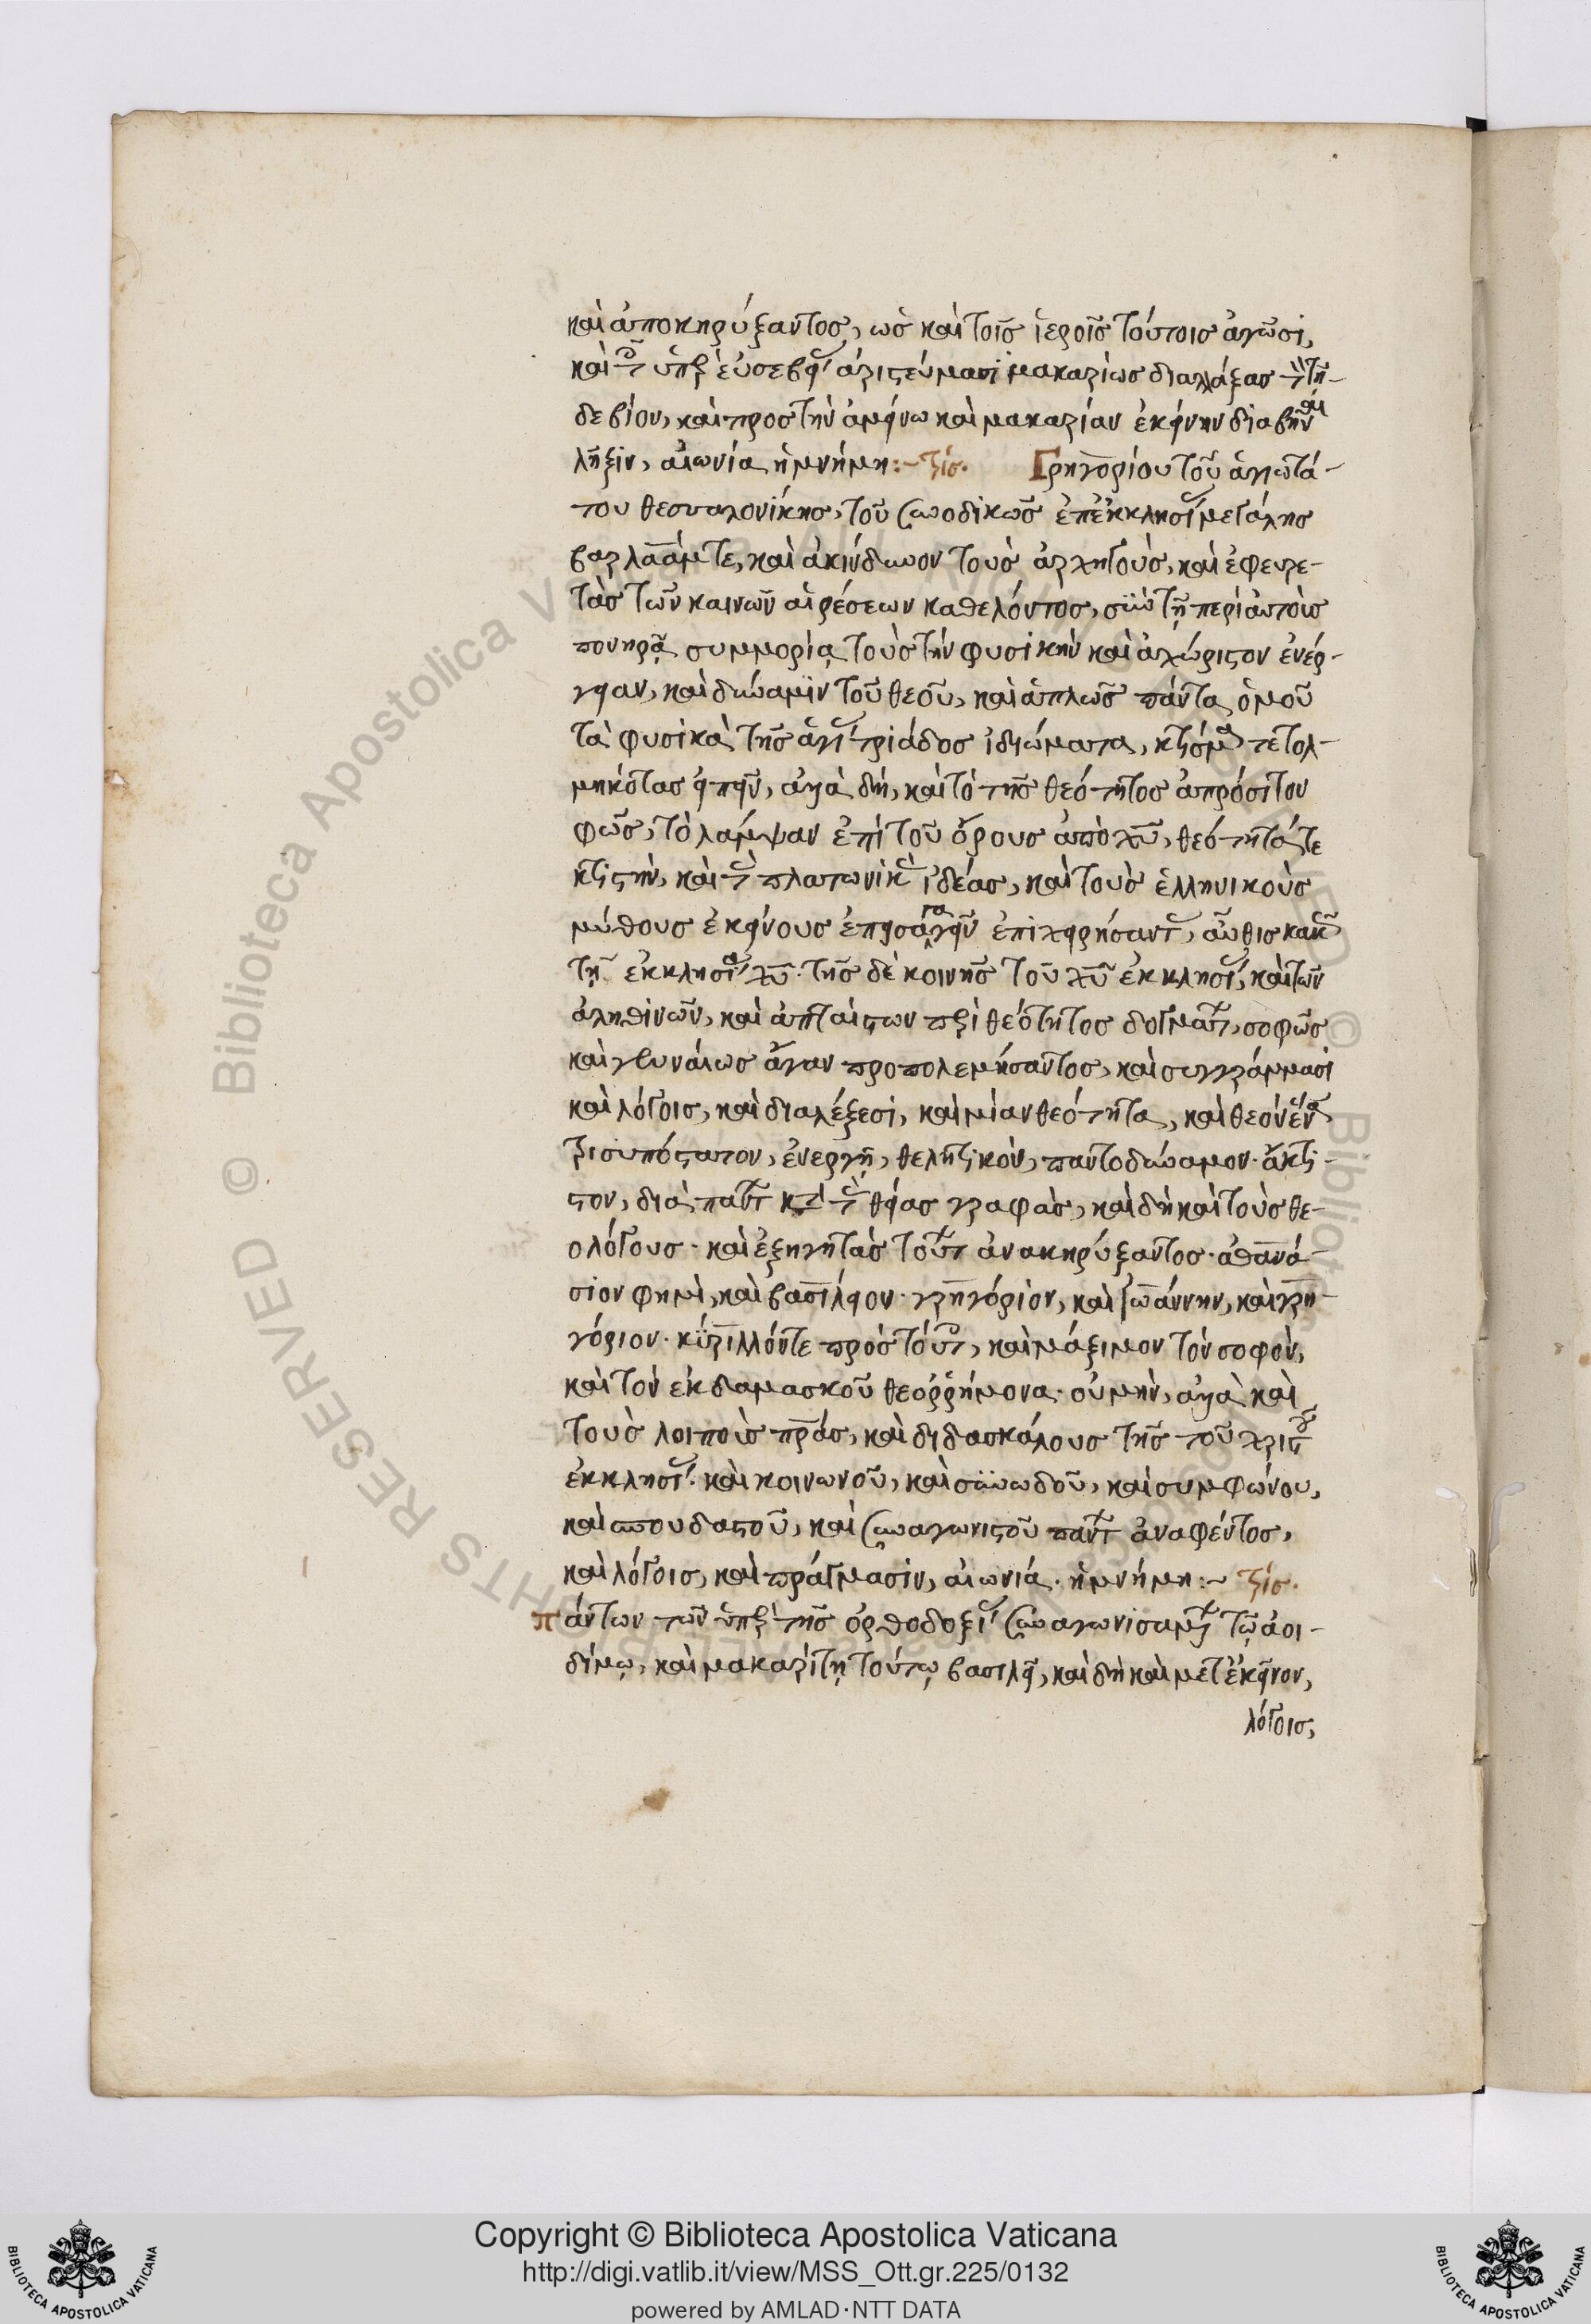 καὶ ἀποκηρύξαντος, ὡς καὶ τοῖς ἱεροῖς τούτοις ἀγῶσι,
καὶ τοῖς ὑπὲρ εὐσεβείας ἀριστεύμασι μακαρίως διαλλάξας τὸν τῇ-
δε βίον, καὶ πρὸς τὴν ἀμείνω καὶ μακαρίαν ἐκείνην διαβῆναι
λῆξιν, αἰωνία ἡ μνήμη :- τρίς. Γρηγορίου τοῦ ἁγιωτά-
του θεσσαλονίκης, τοῦ συνοδικῶς ἐπ' ἐκκλησίας μεγάλης
βαρλαάμ τε, καὶ ἀκίνδυνον τοὺς ἀρχηγοὺς, καὶ ἐφευρε-
τὰς τῶν καινῶν αἱρέσεων καθελόντος, σὺν τῇ περὶ αὐτοὺς
πονηρᾷ συμμορίᾳ τοὺς τὴν φυσικὴν καὶ ἀχώριστον ἐνέρ-
γειαν, καὶ δύναμιν τοῦ θεοῦ, καὶ ἁπλῶς πάντα ὁμοῦ
τὰ φυσικὰ τῆς ἁγίας τριάδος ἰδιώματα, κτίσμα τετολ-
μηκότας εἰπεῖν, ἀλλὰ δὴ, καὶ τὸ τῆς θεότητος ἀπρόσιτον
φῶς, τὸ λάμψαν ἐπὶ τοῦ ὄρους ἀπὸ χυ, θεότητά τε
κτιστὴν, καὶ τὰς πλατωνικὰς ἰδέας, καὶ τοὺς ἑλληνικοὺς
μύθους ἐκείνους ἐπεισαγαγεῖν ἐπιχειρήσαντας, αὖθις κακῶς
τῇ ἐκκλησίᾳ χυ. τῆς δὲ κοινῆς τοῦ χυ ἐκκλησίας, καὶ τῶν
ἀληθινῶν, καὶ ἀπταίστων περὶ θεότητος δογμάτων, σοφῶς
καὶ γενναίως ἄγαν προπολεμήσαντος, καὶ συγγράμμασι
καὶ λόγοις, καὶ διαλέξεσι, καὶ μίαν θεότητα, καὶ θεὸν ἕνα
τρισυπόστατον, ἐνεργῆ, θελητικὸν, παντοδύναμον. ἄκτι-
στον, διὰ παντὸς κατὰ τὰς θείας γραφὰς, καὶ δὴ καὶ τοὺς θε-
ολόγους. καὶ ἐξηγητὰς τούτων ἀνακηρύξαντος. ἀθανά-
σιον φημὶ, καὶ βασίλειον. γρηγόριον, καὶ ἰωάννην, καὶ γρη-
γόριον. κύριλλόν τε πρὸς τούτοις, καὶ μάξιμον τὸν σοφὸν,
καὶ τὸν ἐκ δαμασκοῦ θεορρήμονα. οὐ μὴν, ἀλλὰ καὶ
τοὺς λοιποὺς πρας, καὶ διδασκάλους τῆς τοῦ χριστοῦ
ἐκκλησίας. καὶ κοινωνοῦ, καὶ συνωδοῦ, καὶ συμφώνου,
καὶ σπουδαστοῦ, καὶ συναγωνιστοῦ πάντων ἀναφέντος,
καὶ λόγοις, καὶ πράγμασιν, αἰωνία. ἡ μνήμη :- τρίς.
πάντων τῶν ὑπὲρ τῆς ὀρθοδοξίας συναγωνισαμένων τῷ ἀοι-
δίμῳ, καὶ μακαρίτῃ τούτῳ βασιλεῖ, καὶ δὴ καὶ μετ' ἐκεῖνον,
λόγοις,
Copyright © Biblioteca Apostolica Vaticana
http://digi.vatlib.it/view/MSS_Ott.gr.225/0132
powered by AMLAD·NTT DATA